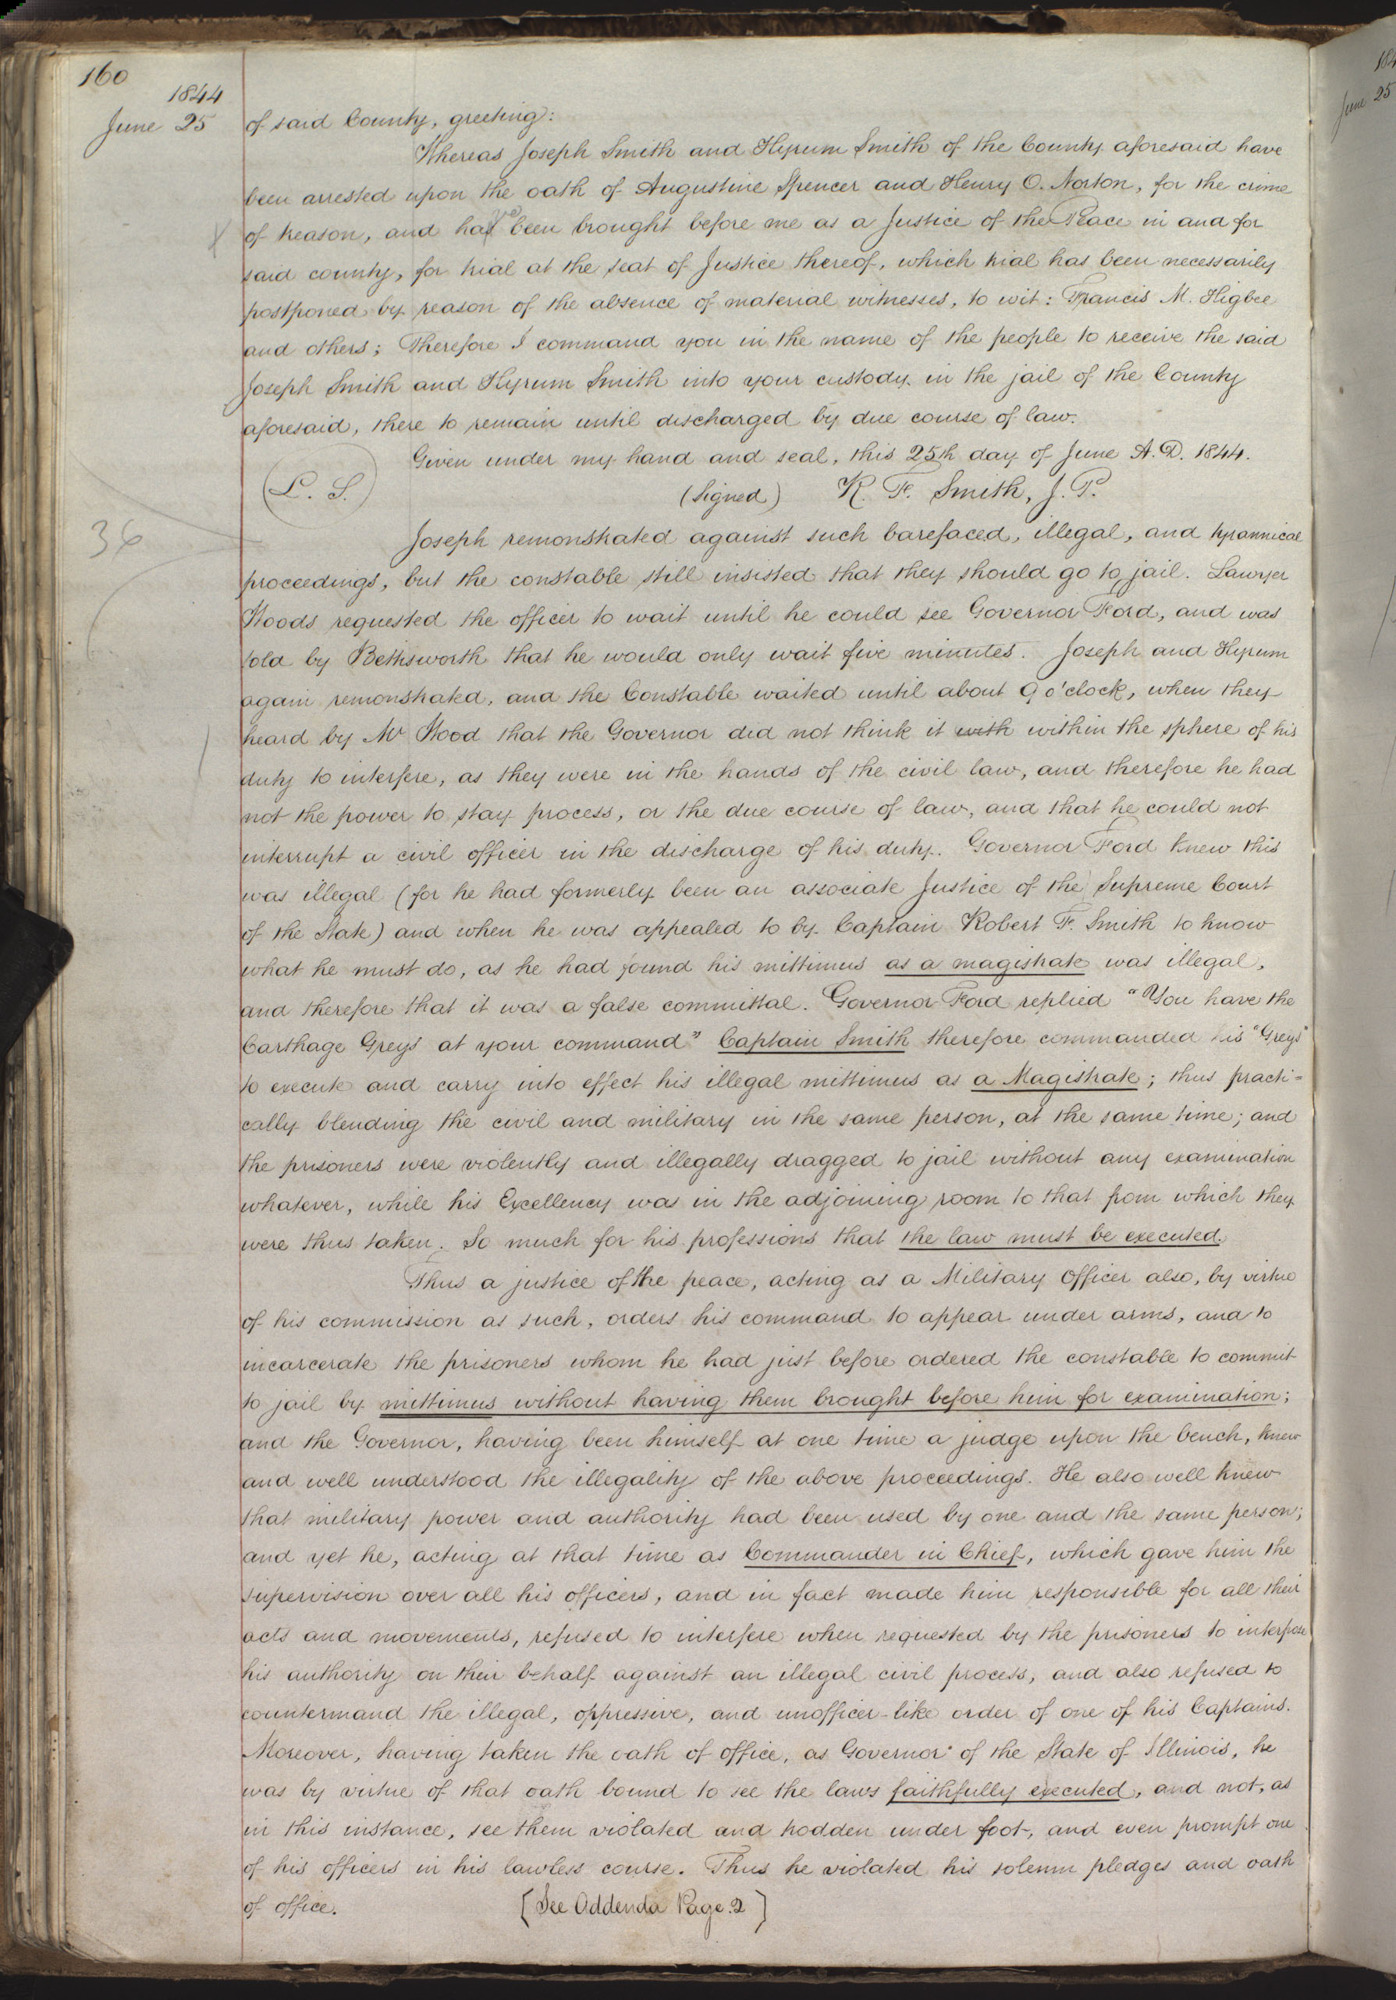 160
1844
June 25
of said County, greeting:
Whereas Joseph Smith and Hyrum Smith of the County aforesaid have
been arrested upon the oath of Augustine Spencer and Henry O. Norton, for the crime
of treason, and have been brought before me as a Justice of the Peace in and for
said county, for trial at the seat of Justice thereof, which trial has been necessarily
postponed by reason of the absence of material witnesses, to wit: Francis M. Higbee
and others; Therefore I command you in the name of the people to receive the said
Joseph Smith and Hyrum Smith into your custody in the jail of the County
aforesaid, there to remain until discharged by due course of law.
Given under my hand and seal, this 25th day of June A.D. 1844.
(L. S.) (Signed) R. F. Smith, J. P.
36
Joseph remonstrated against such barefaced, illegal, and tyrannical
proceedings, but the constable still insisted that they should go to jail. Lawyer
Woods requested the officer to wait until he could see Governor Ford, and was
told by Bettisworth that he would only wait five minutes. Joseph and Hyrum
again remonstrated, and the Constable waited until about 9 o'clock, when they
heard by Mr Wood that the Governor did not think it with within the sphere of his
duty to interfere, as they were in the hands of the civil law, and therefore he had
not the power to stay process, or the due course of law, and that he could not
interrupt a civil officer in the discharge of his duty. Governor Ford knew this
was illegal (for he had formerly been an associate Justice of the Supreme Court
of the State) and when he was appealed to by Captain Robert F. Smith to know
what he must do, as he had found his mittimus as a magistrate was illegal,
and therefore that it was a false committal. Governor Ford replied "You have the
Carthage Greys at your command" Captain Smith therefore commanded his "Greys"
to execute and carry into effect his illegal mittimus as a Magistrate; thus practi=
cally blending the civil and military in the same person, at the same time; and
the prisoners were violently and illegally dragged to jail without any examination
whatever, while his Excellency was in the adjoining room to that from which they
were thus taken. So much for his professions that the law must be executed.
Thus a justice of the peace, acting as a Military Officer also, by virtue
of his commission as such, orders his command to appear under arms, and to
incarcerate the prisoners whom he had just before ordered the constable to commit
to jail by mittimus without having them brought before him for examination;
and the Governor, having been himself at one time a judge upon the bench, knew
and well understood the illegality of the above proceedings. He also well knew
that military power and authority had been used by one and the same person;
and yet he, acting at that time as Commander in Chief, which gave him the
supervision over all his officers, and in fact made him responsible for all their
acts and movements, refused to interfere when requested by the prisoners to interpose
his authority on their behalf against an illegal civil process, and also refused to
countermand the illegal, oppressive, and unofficer-like order of one of his Captains.
Moreover, having taken the oath of office, as Governor of the State of Illinois, he
was by virtue of that oath bound to see the laws faithfully executed, and not, as
in this instance, see them violated and trodden under foot, and even prompt one
of his officers in his lawless course. Thus he violated his solemn pledges and oath
of office. [See Addenda Page. 2]
184
June 25